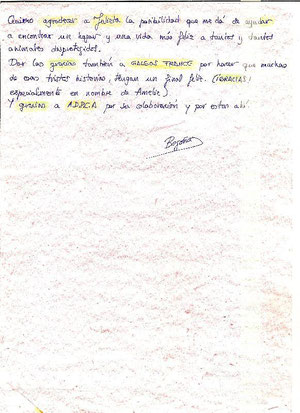 Quiero agradecer a Julieta la posibilidad que me dá de ayudar
a encontrar un hogar y una vida más feliz a tantos y tantos
animales desprotegidos.
Dar las gracias también a GALGOS FRANCE por hacer que muchas
de esas tristes historias, tengan un final feliz. (GRACIAS!
especialmente en nombre de Amelie).
Y gracias a ADPCA por su colaboración y por estar ahí.